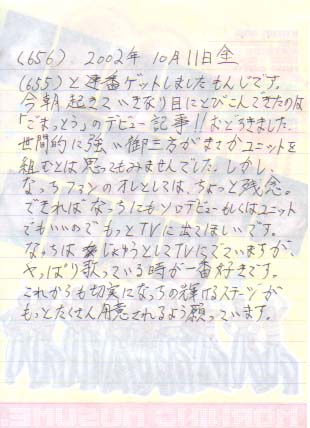 (656) 2002年 10月11日金
(655)と連番ゲットしましたもんじです。
今朝起きていきなり目にとびこんできたのは
「ごまっとう」のデビュー記事!!おどろきました。
世間的に強い御三方がまさかユニットを
組むとは思ってもみませんでした。しかし、
なっちファンのオレとしては、ちょっと残念。
できればなっちにもソロデビューもしくはユニット
でもいいのでもっとTVに出てほしいです。
なっちは じょゆうとしてTVにでていますが、
やっぱり歌っている時が一番好きです。
これからも切実になっちの輝けるステージが
もっとたくさん用意されるよう願っています。
MORNING MUSUME.